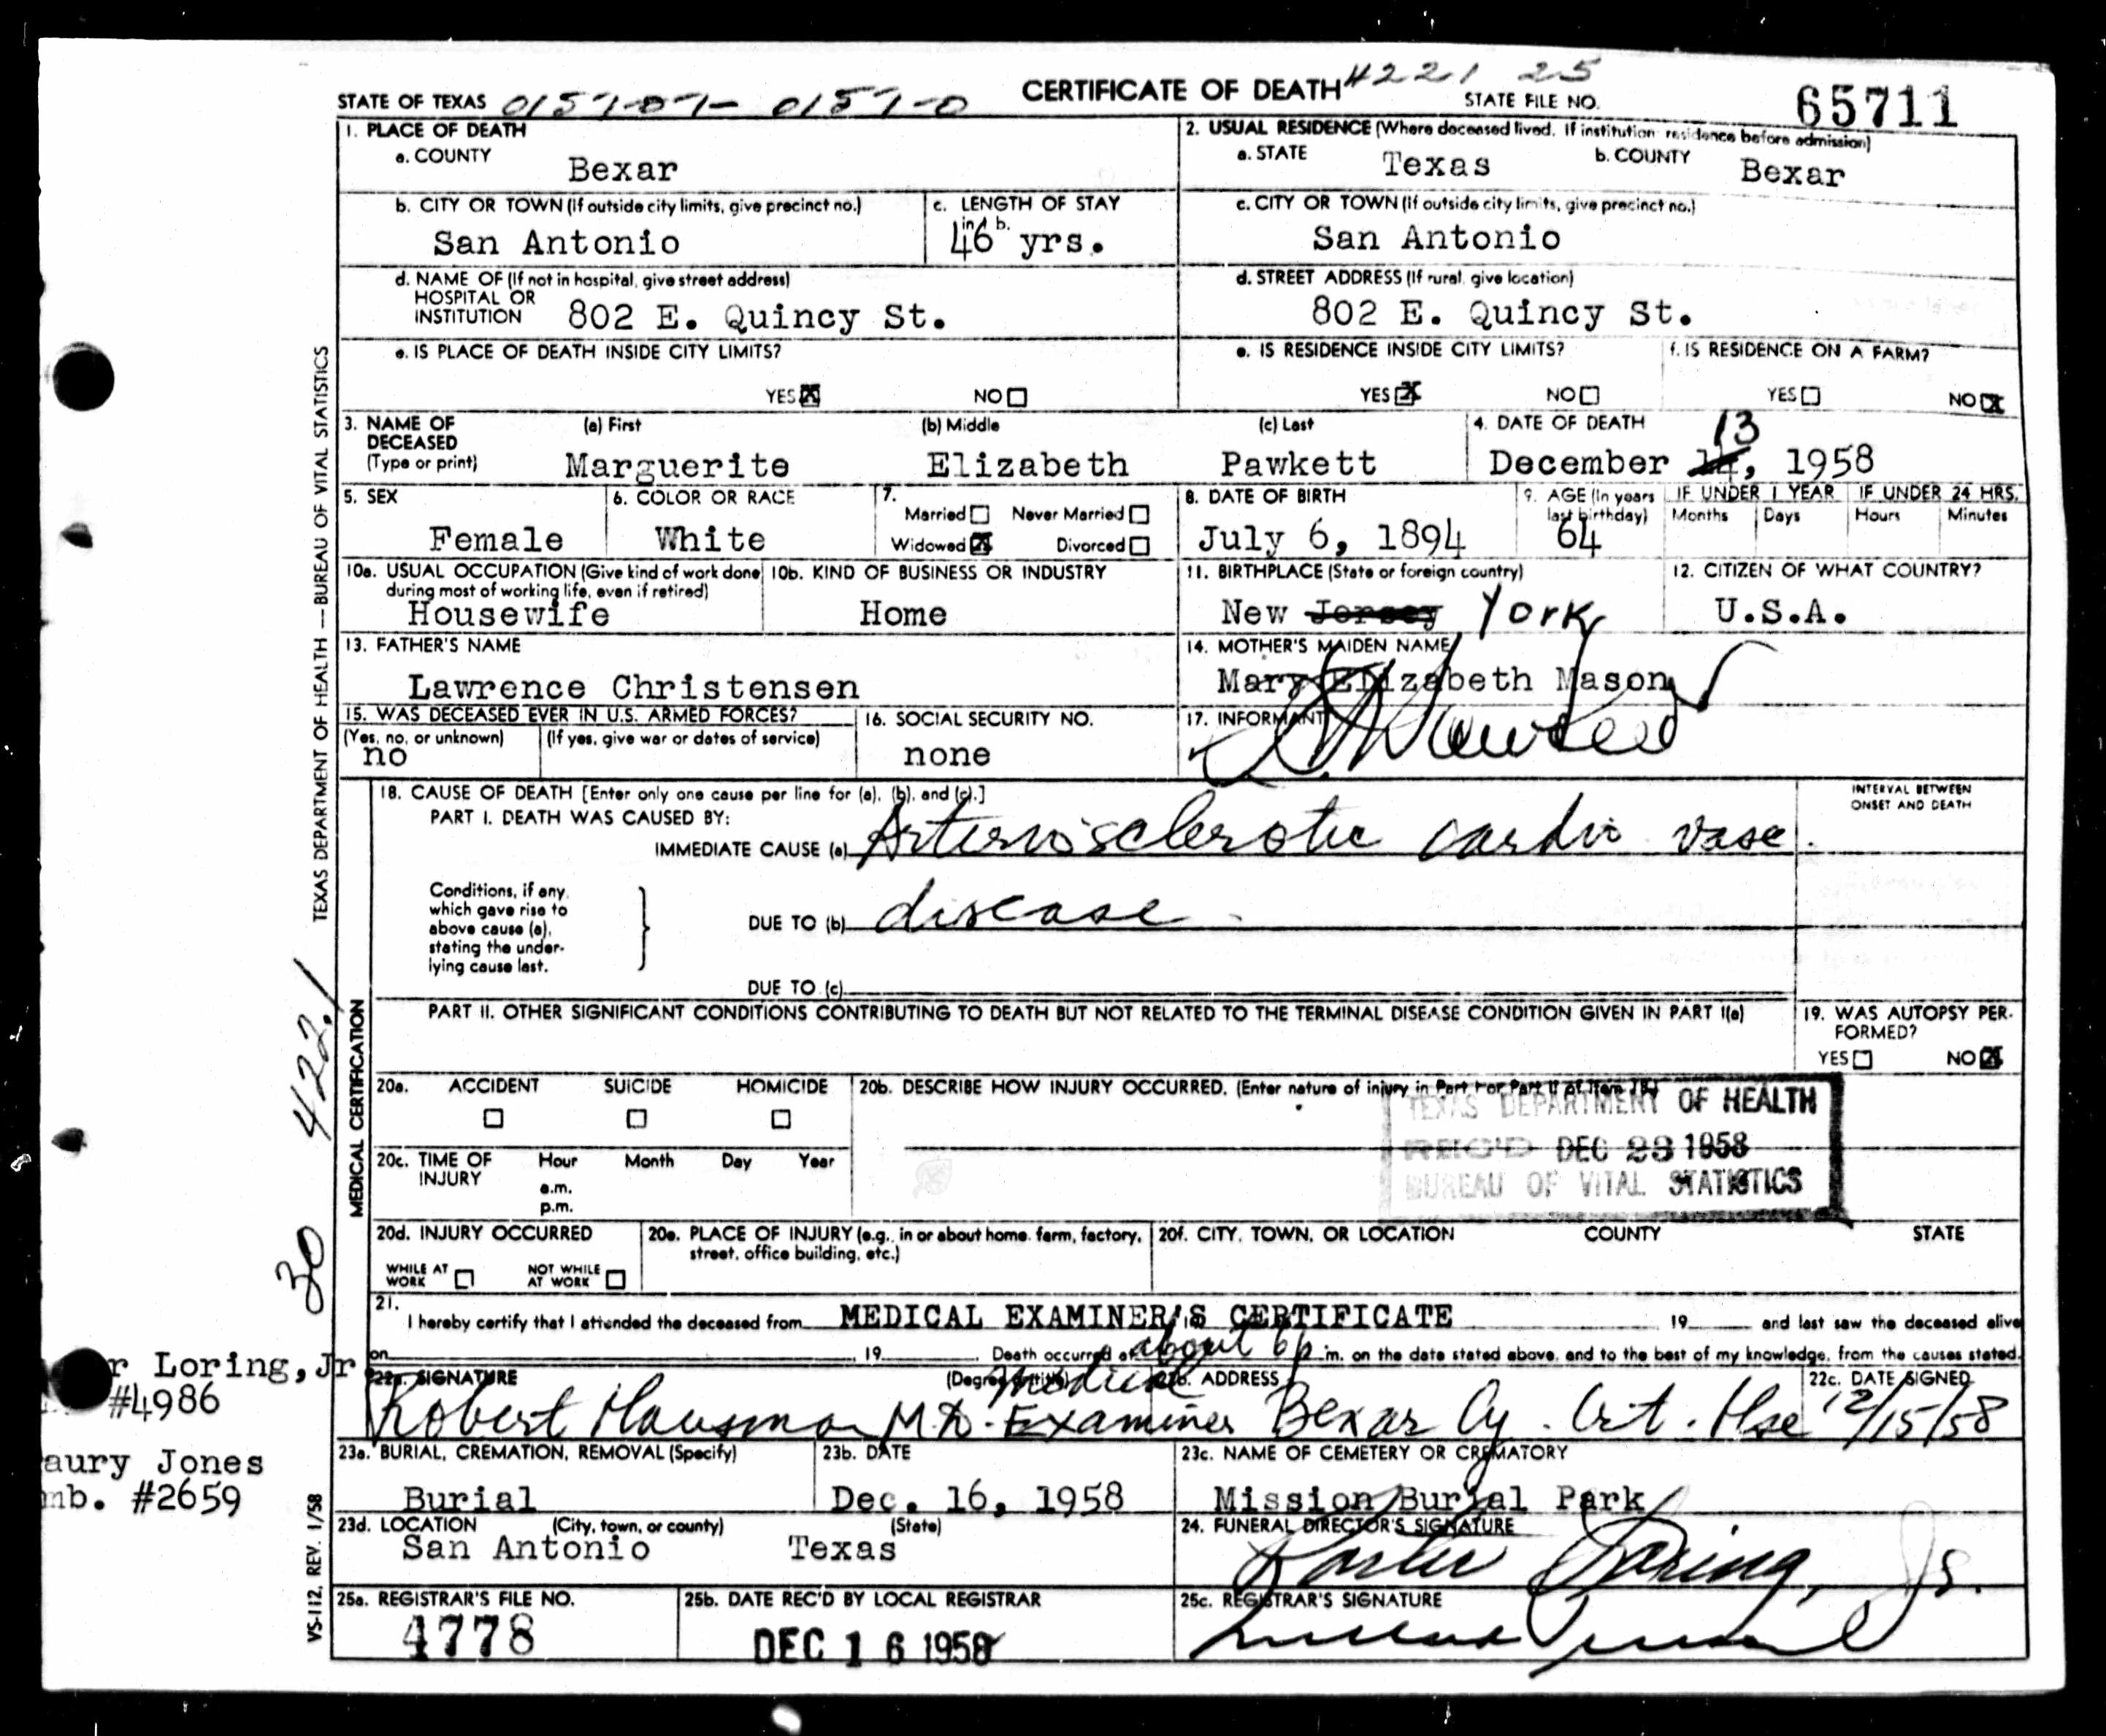 STATE OF TEXAS 0157-07- 0157-0 CERTIFICATE OF DEATH 4221 25 STATE FILE NO. 65711
1. PLACE OF DEATH
a. COUNTY Bexar
2. USUAL RESIDENCE (Where deceased lived. If institution: residence before admission)
a. STATE Texas b. COUNTY Bexar
b. CITY OR TOWN (If outside city limits, give precinct no.) San Antonio
c. LENGTH OF STAY in b. 46 yrs.
c. CITY OR TOWN (If outside city limits, give precinct no.) San Antonio
d. NAME OF (If not in hospital, give street address)
HOSPITAL OR
INSTITUTION 802 E. Quincy St.
d. STREET ADDRESS (If rural, give location)
802 E. Quincy St.
e. IS PLACE OF DEATH INSIDE CITY LIMITS?
YES X NO
e. IS RESIDENCE INSIDE CITY LIMITS?
YES X NO
f. IS RESIDENCE ON A FARM?
YES NO X
3. NAME OF DECEASED (Type or print)
(a) First Marguerite (b) Middle Elizabeth (c) Last Pawkett
4. DATE OF DEATH
13
December 14, 1958
5. SEX Female
6. COLOR OR RACE White
7. Married Never Married
Widowed X Divorced
8. DATE OF BIRTH July 6, 1894
9. AGE (In years last birthday) 64
IF UNDER 1 YEAR Months Days
IF UNDER 24 HRS. Hours Minutes
10a. USUAL OCCUPATION (Give kind of work done during most of working life, even if retired)
Housewife
10b. KIND OF BUSINESS OR INDUSTRY
Home
11. BIRTHPLACE (State or foreign country)
New Jersey York
12. CITIZEN OF WHAT COUNTRY?
U.S.A.
13. FATHER'S NAME
Lawrence Christensen
14. MOTHER'S MAIDEN NAME
Mary Elizabeth Mason
15. WAS DECEASED EVER IN U.S. ARMED FORCES?
(Yes, no, or unknown) (If yes, give war or dates of service)
no
16. SOCIAL SECURITY NO.
none
17. INFORMANT
18. CAUSE OF DEATH [Enter only one cause per line for (a), (b), and (c).]
INTERVAL BETWEEN ONSET AND DEATH
PART I. DEATH WAS CAUSED BY:
IMMEDIATE CAUSE (a) Arteriosclerotic cardio vasc.
Conditions, if any, which gave rise to above cause (a), stating the underlying cause last.
DUE TO (b) disease
DUE TO (c)
PART II. OTHER SIGNIFICANT CONDITIONS CONTRIBUTING TO DEATH BUT NOT RELATED TO THE TERMINAL DISEASE CONDITION GIVEN IN PART I(a)
19. WAS AUTOPSY PERFORMED?
YES NO X
20a. ACCIDENT SUICIDE HOMICIDE
20b. DESCRIBE HOW INJURY OCCURRED. (Enter nature of injury in Part I or Part II of Item 18.)
TEXAS DEPARTMENT OF HEALTH
REC'D DEC 23 1958
BUREAU OF VITAL STATISTICS
20c. TIME OF INJURY Hour Month Day Year
a.m.
p.m.
20d. INJURY OCCURRED
WHILE AT WORK NOT WHILE AT WORK
20e. PLACE OF INJURY (e.g., in or about home, farm, factory, street, office building, etc.)
20f. CITY, TOWN, OR LOCATION COUNTY STATE
21. I hereby certify that I attended the deceased from MEDICAL EXAMINER'S CERTIFICATE 19 and last saw the deceased alive
on 19 . Death occurred at about 6 p .m. on the date stated above, and to the best of my knowledge, from the causes stated.
22a. SIGNATURE (Degree or title)
Robert Hausman M.D. Medical Examiner
22b. ADDRESS
Bexar Cy. Crt. Hse
22c. DATE SIGNED
12/15/58
23a. BURIAL, CREMATION, REMOVAL (Specify)
Burial
23b. DATE
Dec. 16, 1958
23c. NAME OF CEMETERY OR CREMATORY
Mission Burial Park
23d. LOCATION (City, town, or county) (State)
San Antonio Texas
24. FUNERAL DIRECTOR'S SIGNATURE
Porter Loring, Jr.
25a. REGISTRAR'S FILE NO.
4778
25b. DATE REC'D BY LOCAL REGISTRAR
DEC 16 1958
25c. REGISTRAR'S SIGNATURE
TEXAS DEPARTMENT OF HEALTH — BUREAU OF VITAL STATISTICS
MEDICAL CERTIFICATION
VS-112, REV. 1/58
30 422.1
r Loring, Jr
#4986
aury Jones
mb. #2659